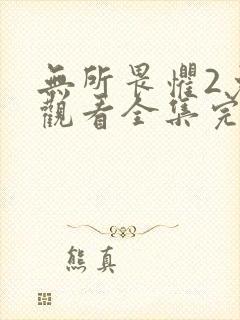 無所畏懼2
觀看全集完
熊真